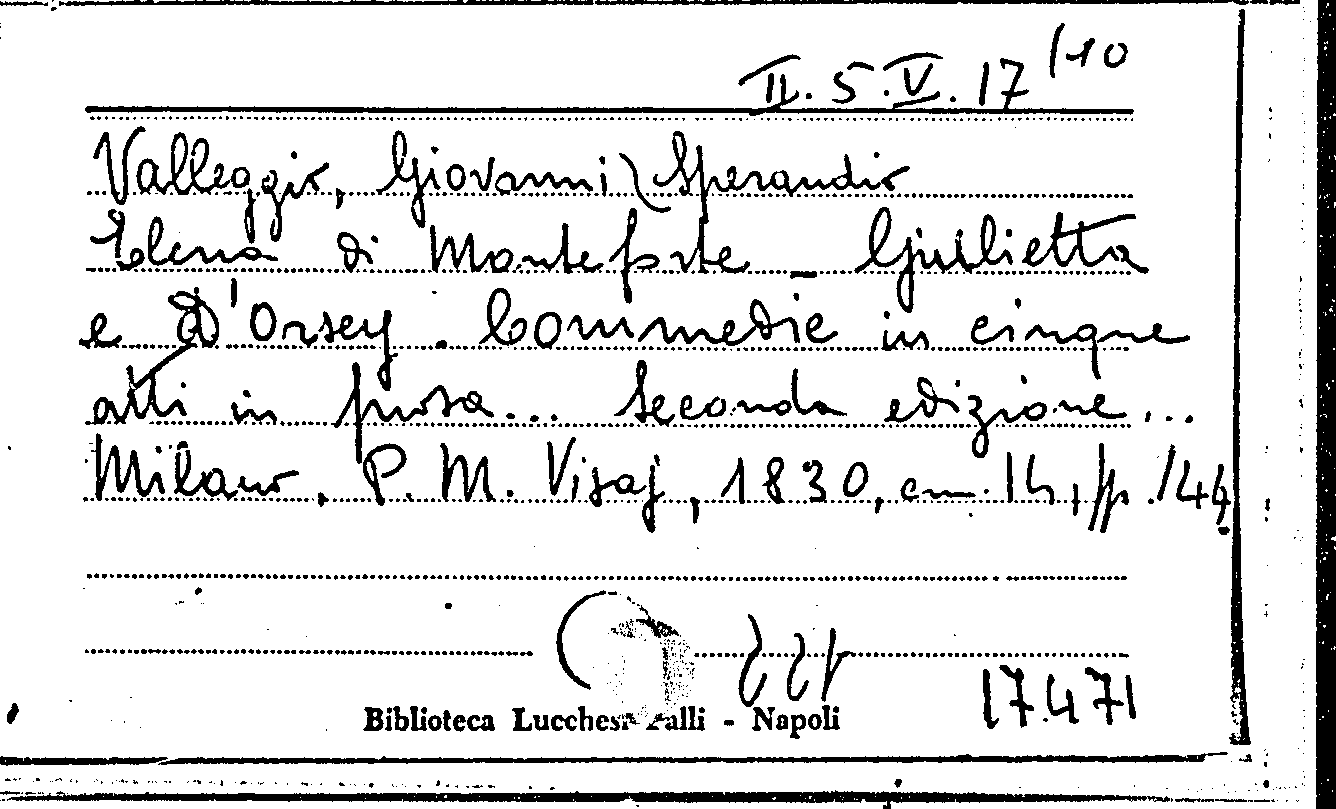 II. 5. V. 17 /10
Valleggio, Giovanni Sperandio
Elena di Monteforte - Giulietta
e D'Orsey. Commedie in cinque
atti in prosa... Seconda edizione...
Milano, P. M. Visaj, 1830, cm. 14, pp. 144
17471
Biblioteca Lucchesi Palli - Napoli